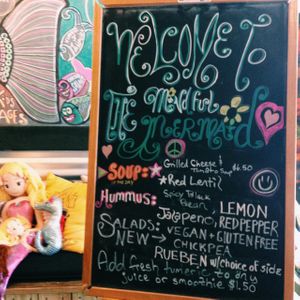 WELCOME TO
THE Mindful
MERMAID
SOUP:
OF THE DAY
Grilled Cheese &
Tomato Soup $6.50
Red Lentil
HUMMUS:
Spicy Black
Bean,
LEMON
Jalapeno,
RED PEPPER
SALADS:
VEGAN & GLUTEN FREE
NEW →
CHICKPEA
RUEBEN w/choice of side
Add fresh tumeric to any
juice or smoothie $1.50